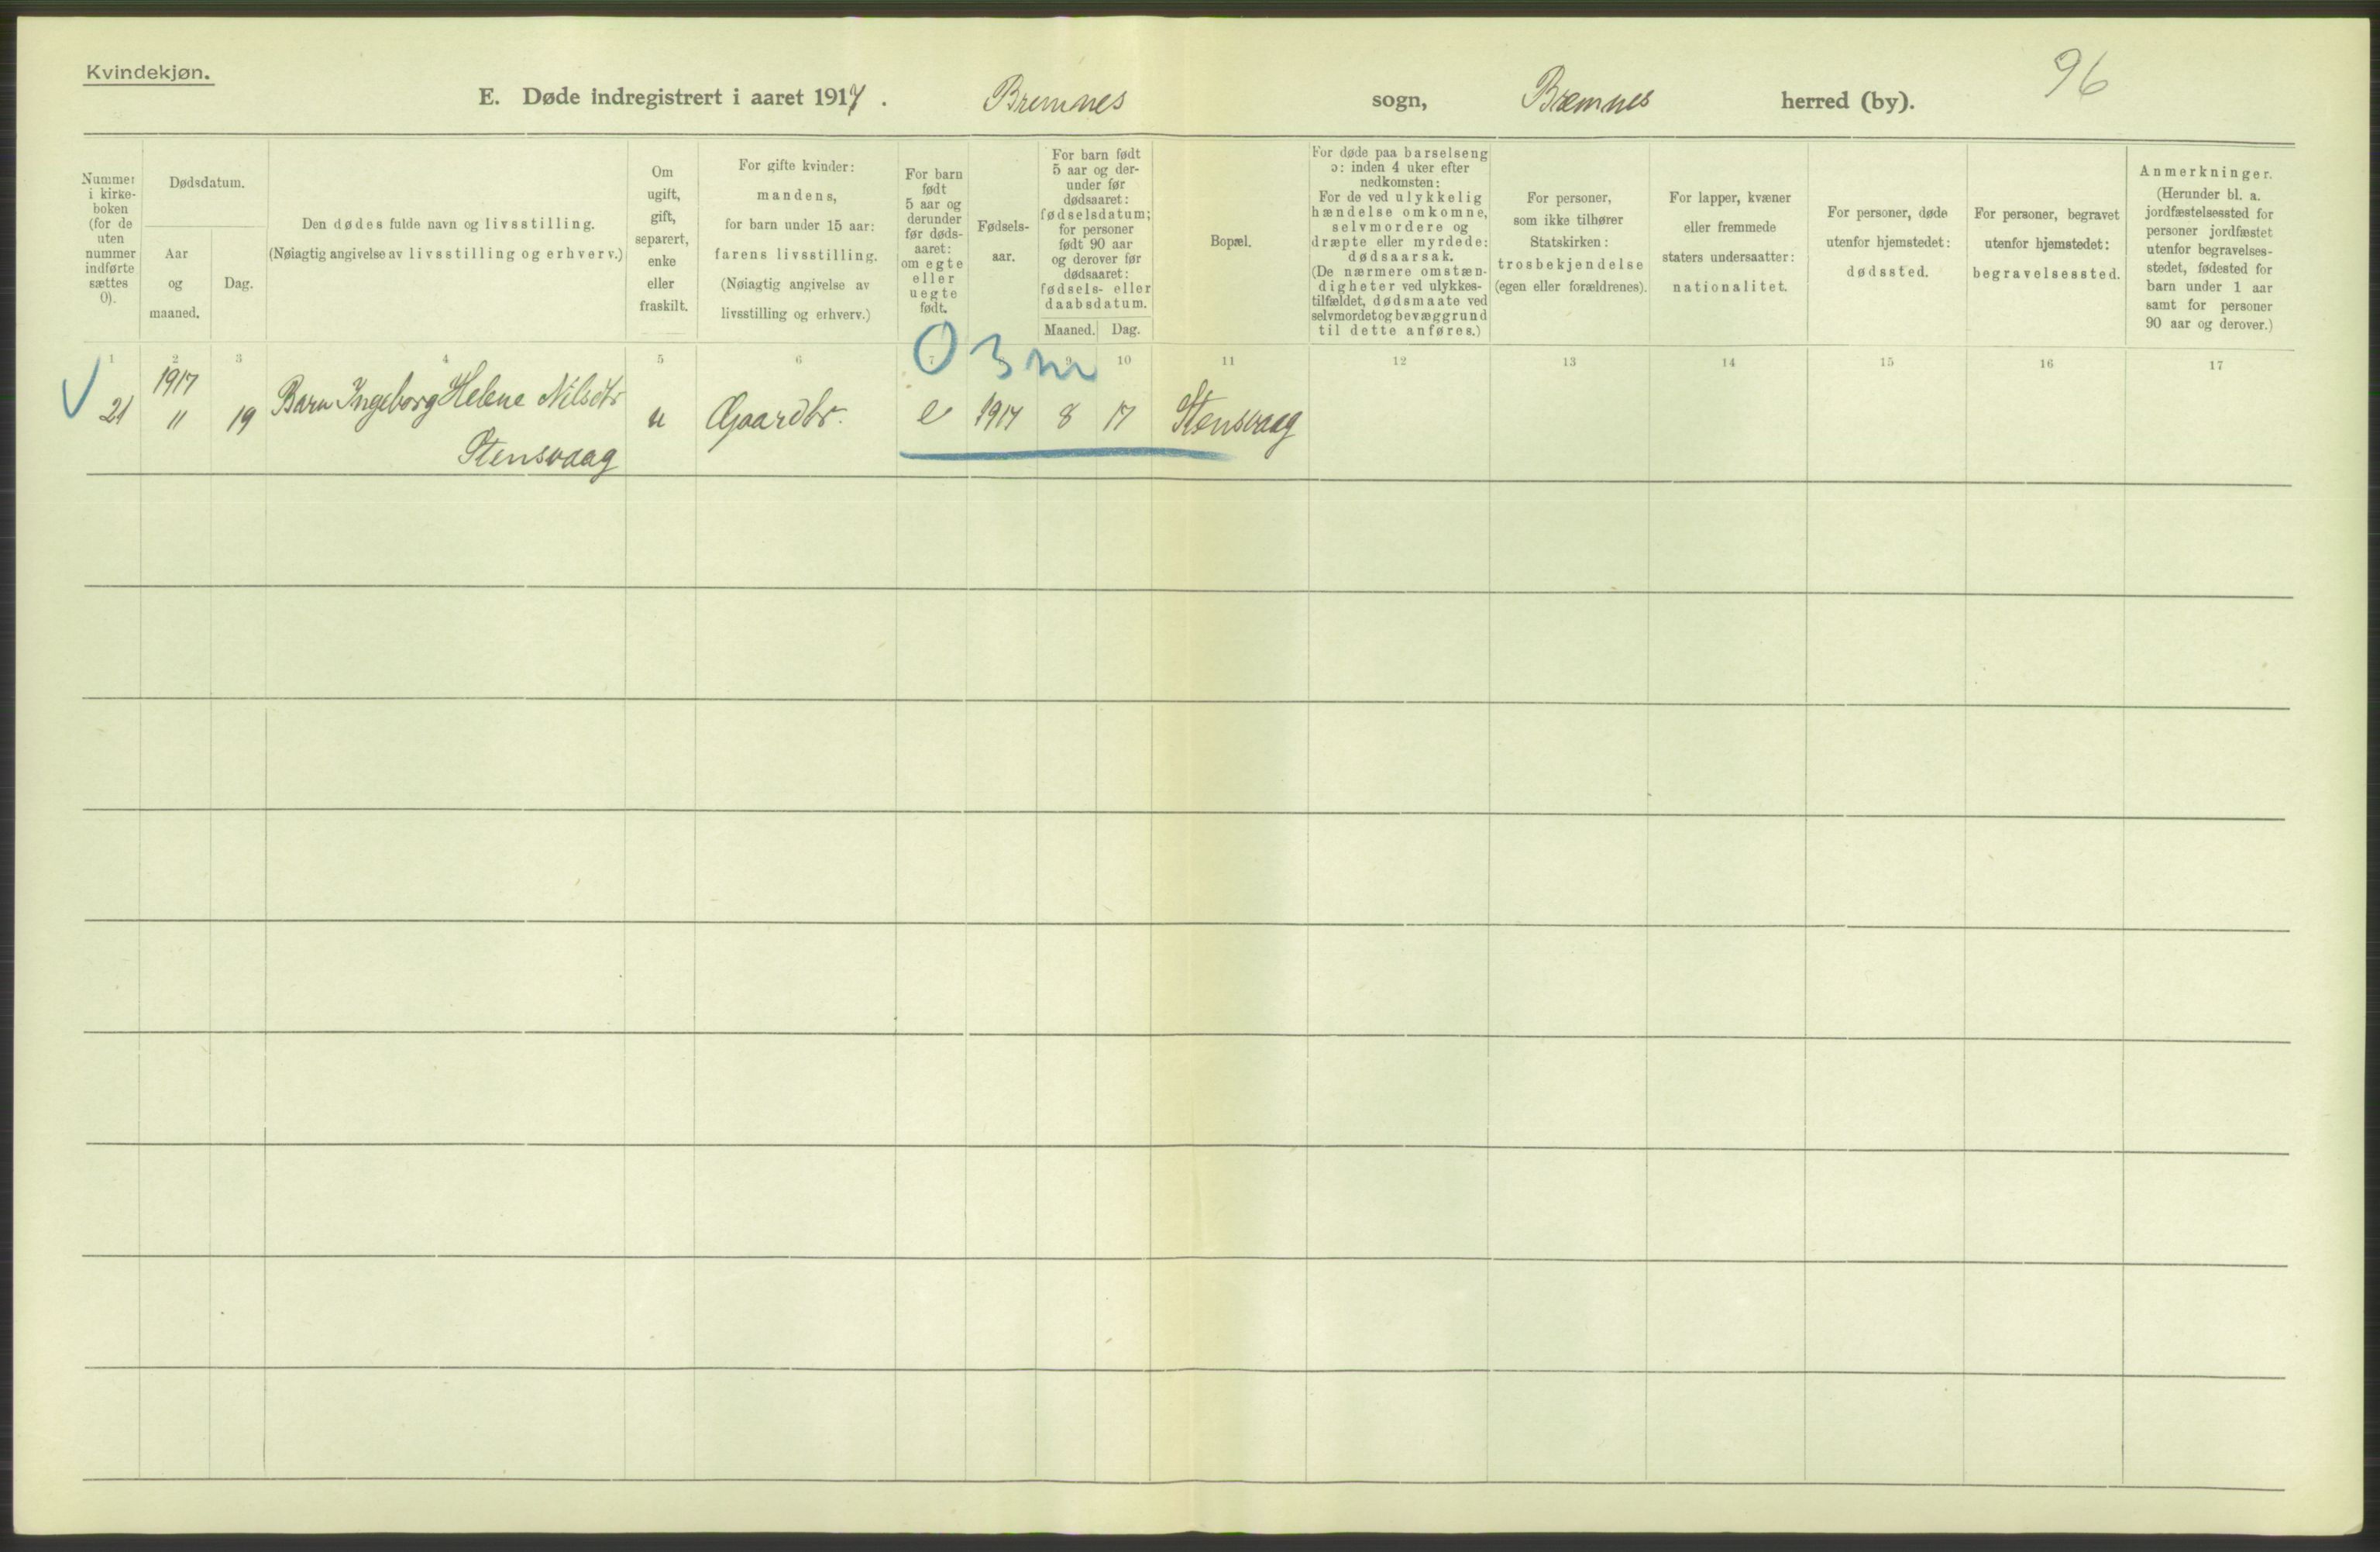 Kvindekjøn.
E. Døde indregistrert i aaret 1917. Bremnes sogn, Bremnes herred (by). 96
Nummer
i kirke-
boken
(for de
uten
nummer
indførte
sættes
0).
Dødsdatum.
Aar
og
maaned.
Dag.
Den dødes fulde navn og livsstilling.
(Nøiagtig angivelse av livsstilling og erhverv.)
Om
ugift,
gift,
separert,
enke
eller
fraskilt.
For gifte kvinder:
mandens,
for barn under 15 aar:
farens livsstilling.
(Nøiagtig angivelse av
livsstilling og erhverv.)
For barn
født
5 aar og
derunder
før døds-
aaret:
om egte
eller
uegte
født.
Fødsels-
aar.
For barn født
5 aar og der-
under før
dødsaaret:
fødselsdatum;
for personer
født 90 aar
og derover før
dødsaaret:
fødsels- eller
daabsdatum.
Maaned. Dag.
Bopæl.
For døde paa barselseng
ɔ: inden 4 uker efter
nedkomsten:
For de ved ulykkelig
hændelse omkomne,
selvmordere og
dræpte eller myrdede:
dødsaarsak.
(De nærmere omstæn-
digheter ved ulykkes-
tilfældet, dødsmaate ved
selvmordet og bevæggrund
til dette anføres.)
For personer,
som ikke tilhører
Statskirken:
trosbekjendelse
(egen eller forældrenes).
For lapper, kvæner
eller fremmede
staters undersaatter:
nationalitet.
For personer, døde
utenfor hjemstedet:
dødssted.
For personer, begravet
utenfor hjemstedet:
begravelsessted.
Anmerkninger.
(Herunder bl. a.
jordfæstelsessted for
personer jordfæstet
utenfor begravelses-
stedet, fødested for
barn under 1 aar
samt for personer
90 aar og derover.)
1 2 3 4 5 6 7 9 10 11 12 13 14 15 16 17
0 3 m
1917
21 11 19 Barn Ingeborg Helene Nilsdtr u Gaardbr. e 1917 8 17 Stensvaag
Stensvaag